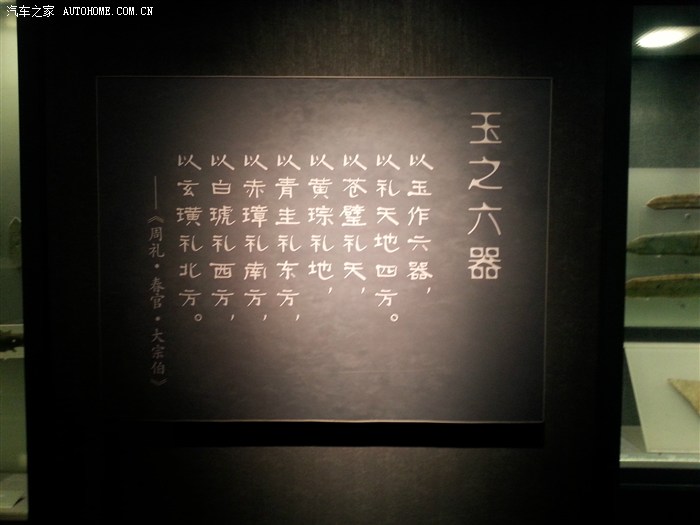 汽车之家 AUTOHOME.COM.CN
玉之六器
以玉作六器，
以礼天地四方。
以苍璧礼天，
以黄琮礼地，
以青圭礼东方，
以赤璋礼南方，
以白琥礼西方，
以玄璜礼北方。
——《周礼·春官·大宗伯》